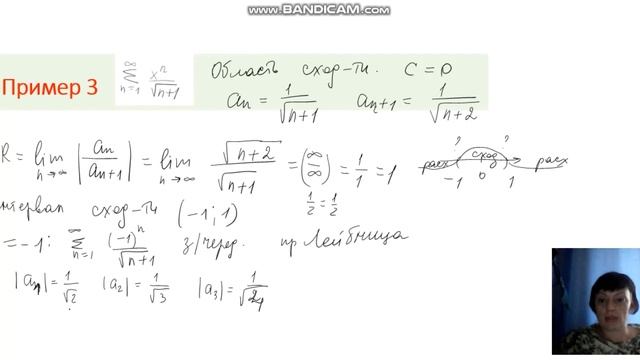 www.BANDICAM.com
Пример 3 ∑_{n=1}^{∞} x^n/√(n+1) Область сход-ти. C = 0
a_n = 1/√(n+1) a_{n+1} = 1/√(n+2)
R = lim_{n→∞} |a_n/a_{n+1}| = lim_{n→∞} √(n+2)/√(n+1) = (∞/∞) = 1/1 = 1
1/2 = 1/2
? ?
расх сход расх
-1 0 1
нтервал сход-ти (-1; 1)
= -1: ∑_{n=1}^{∞} (-1)^n/√(n+1) з/черед. пр Лейбница
|a_1| = 1/√2 |a_2| = 1/√3 |a_3| = 1/√4